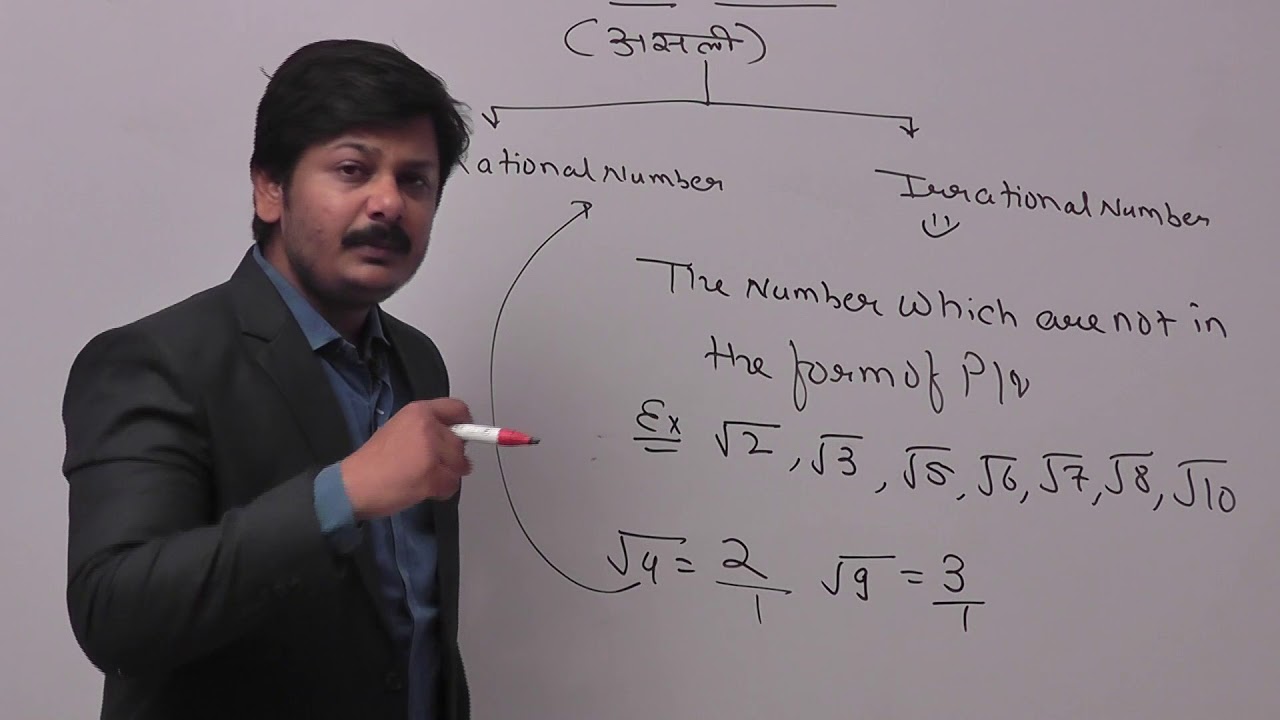 (असली)
Rational Number
Irrational Number
The Number which are not in
the form of P/q
Ex √2, √3, √5, √6, √7, √8, √10
√4 = 2/1 √9 = 3/1